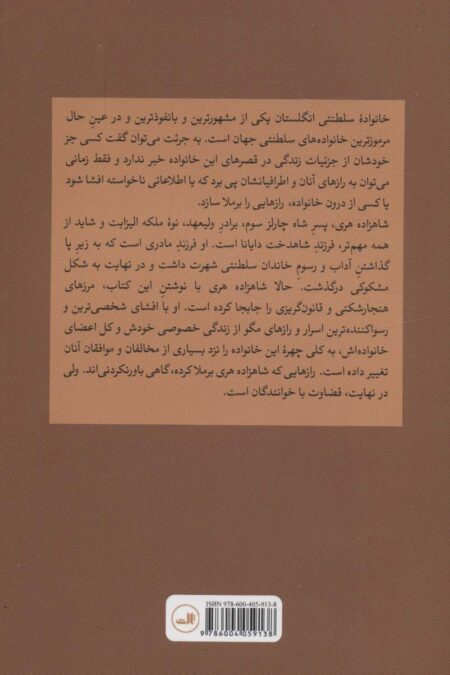 خانوادهٔ سلطنتی انگلستان یکی از مشهورترین و بانفوذترین و در عینِ حال
مرموزترین خانواده‌های سلطنتی جهان است. به جرئت می‌توان گفت کسی جز
خودشان از جزئیات زندگی در قصرهای این خانواده خبر ندارد و فقط زمانی
می‌توان به رازهای آنان و اطرافیانشان پی برد که یا اطلاعاتی ناخواسته افشا شود
یا کسی از درون خانواده، رازهایی را برملا سازد.
شاهزاده هری، پسرِ شاه چارلز سوم، برادرِ ولیعهد، نوهٔ ملکه الیزابت و شاید از
همه مهم‌تر، فرزندِ شاهدخت دایانا است. او فرزندِ مادری است که به زیرِ پا
گذاشتنِ آداب و رسومِ خاندان سلطنتی شهرت داشت و در نهایت به شکل
مشکوکی درگذشت. حالا شاهزاده هری با نوشتنِ این کتاب، مرزهای
هنجارشکنی و قانون‌گریزی را جابجا کرده است. او با افشای شخصی‌ترین و
رسواکننده‌ترین اسرار و رازهای مگو از زندگی خصوصی خودش و کل اعضای
خانواده‌اش، به کلی چهرهٔ این خانواده را نزد بسیاری از مخالفان و موافقان آنان
تغییر داده است. رازهایی که شاهزاده هری برملا کرده، گاهی باورنکردنی‌اند. ولی
در نهایت، قضاوت با خوانندگان است.
ISBN 978-600-405-913-8
9 786004 059138
ثالث